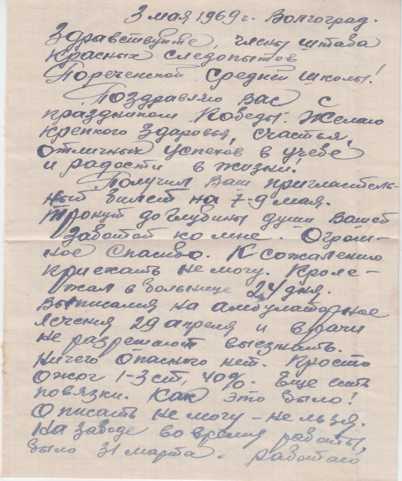 3 мая 1969 г. Волгоград.
Здравствуйте, члены штаба
Красных следопытов
Пореченской средней школы!
Поздравляю Вас с
праздником Победы. Желаю
крепкого здоровья, счастья,
отличных успехов в учебе
и радости в жизни.
Получил Ваш пригласитель-
ный билет на 7-9 мая.
Тронут до глубины души Вашей
заботой ко мне. Огром-
ное спасибо. К сожалению
приехать не могу. Проле-
жал в больнице 24 дня.
Выписался на амбулаторное
лечения 29 апреля и врачи
не разрешают выезжать.
Ничего опасного нет. Просто
ожог 1-3 ст, 40%. Еще есть
повязки. Как это было!
Описать не могу - нельзя.
На заводе во время работы,
было 31 марта. работаю